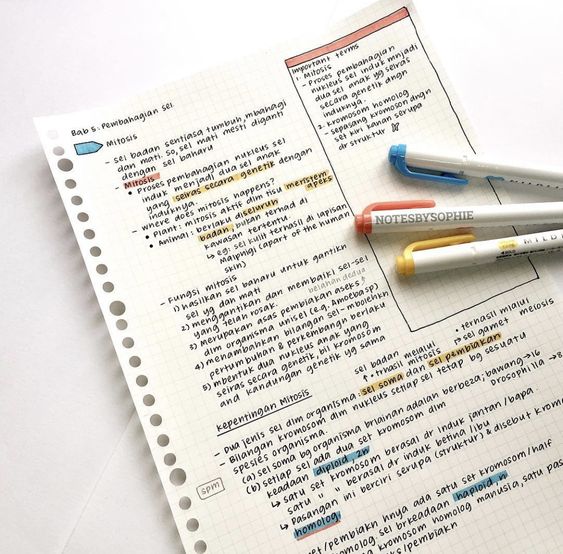 Bab 5: Pembahagian sel
Mitosis
- sel badan sentiasa tumbuh, mbahagi
dan mati. so, sel mati mesti diganti
dengan sel baharu
Mitosis
• Proses pembahagian nukleus sel
induk menjadi dua sel anak
yang seiras secara genetik dengan
induknya.
- where does mitosis happens?
• Plant: mitosis aktif dlm tisu meristem
apeks
• Animal: berlaku di seluruh
badan, bukan terhad di
kawasan tertentu.
↳ eg: sel kulit terhasil di lapisan
Malpighi (apart of the human
skin)
- Fungsi mitosis
1) hasilkan sel baharu untuk gantikn
sel yg dah mati
2) menggantikan dan membaiki sel-sel
yang telah rosak.
belahan dedua
3) Merupakan asas pembiakan aseks
dlm organisma unisel (e.g; Amoeba sp)
4) menambahkan bilangan sel-mbolehkn
pertumbuhan & perkembangn berlaku
5) mbentuk dua nukleus anak yang
seiras secara genetik, bil kromosom
and kandungan genetik yg sama
Important terms
1. Mitosis
- Proses pembahagian
nukleus sel induk mnjadi
dua sel anak yg seiras
secara genetik dngn
induknya.
2. kromosom homolog
- sepasang kromosom dngn
set kiri kanan serupa
dr struktur
NOTESBYSOPHIE
MILDL
Kepentingan Mitosis
sel badan melalui
• trhasil mitosis
• terhasil mlalui
sel gamet
meiosis
- Dua jenis sel dlm organisma: sel soma dan sel pembiakan
- Bilangan kromosom dlm nukleus setiap sel tetap bg sesuatu
spesies organisma.
(a) sel soma bg organisma brlainan adalah berbeza; bawang→16
drosophila →8
(b) setiap sel ada dua set kromosom dlm
keadaan diploid, 2n
↳ satu set kromosom berasal dr induk jantan/bapa
satu " " berasal dr induk betina/ibu
↳ Pasangan ini berciri serupa (struktur) & disebut krom
homolog
spm
et/pembiakn hnya ada satu set kromosom/half
kromosom sel brkeadaan haploid, n
kromosom homolog manusia, satu pas
/pembiakn